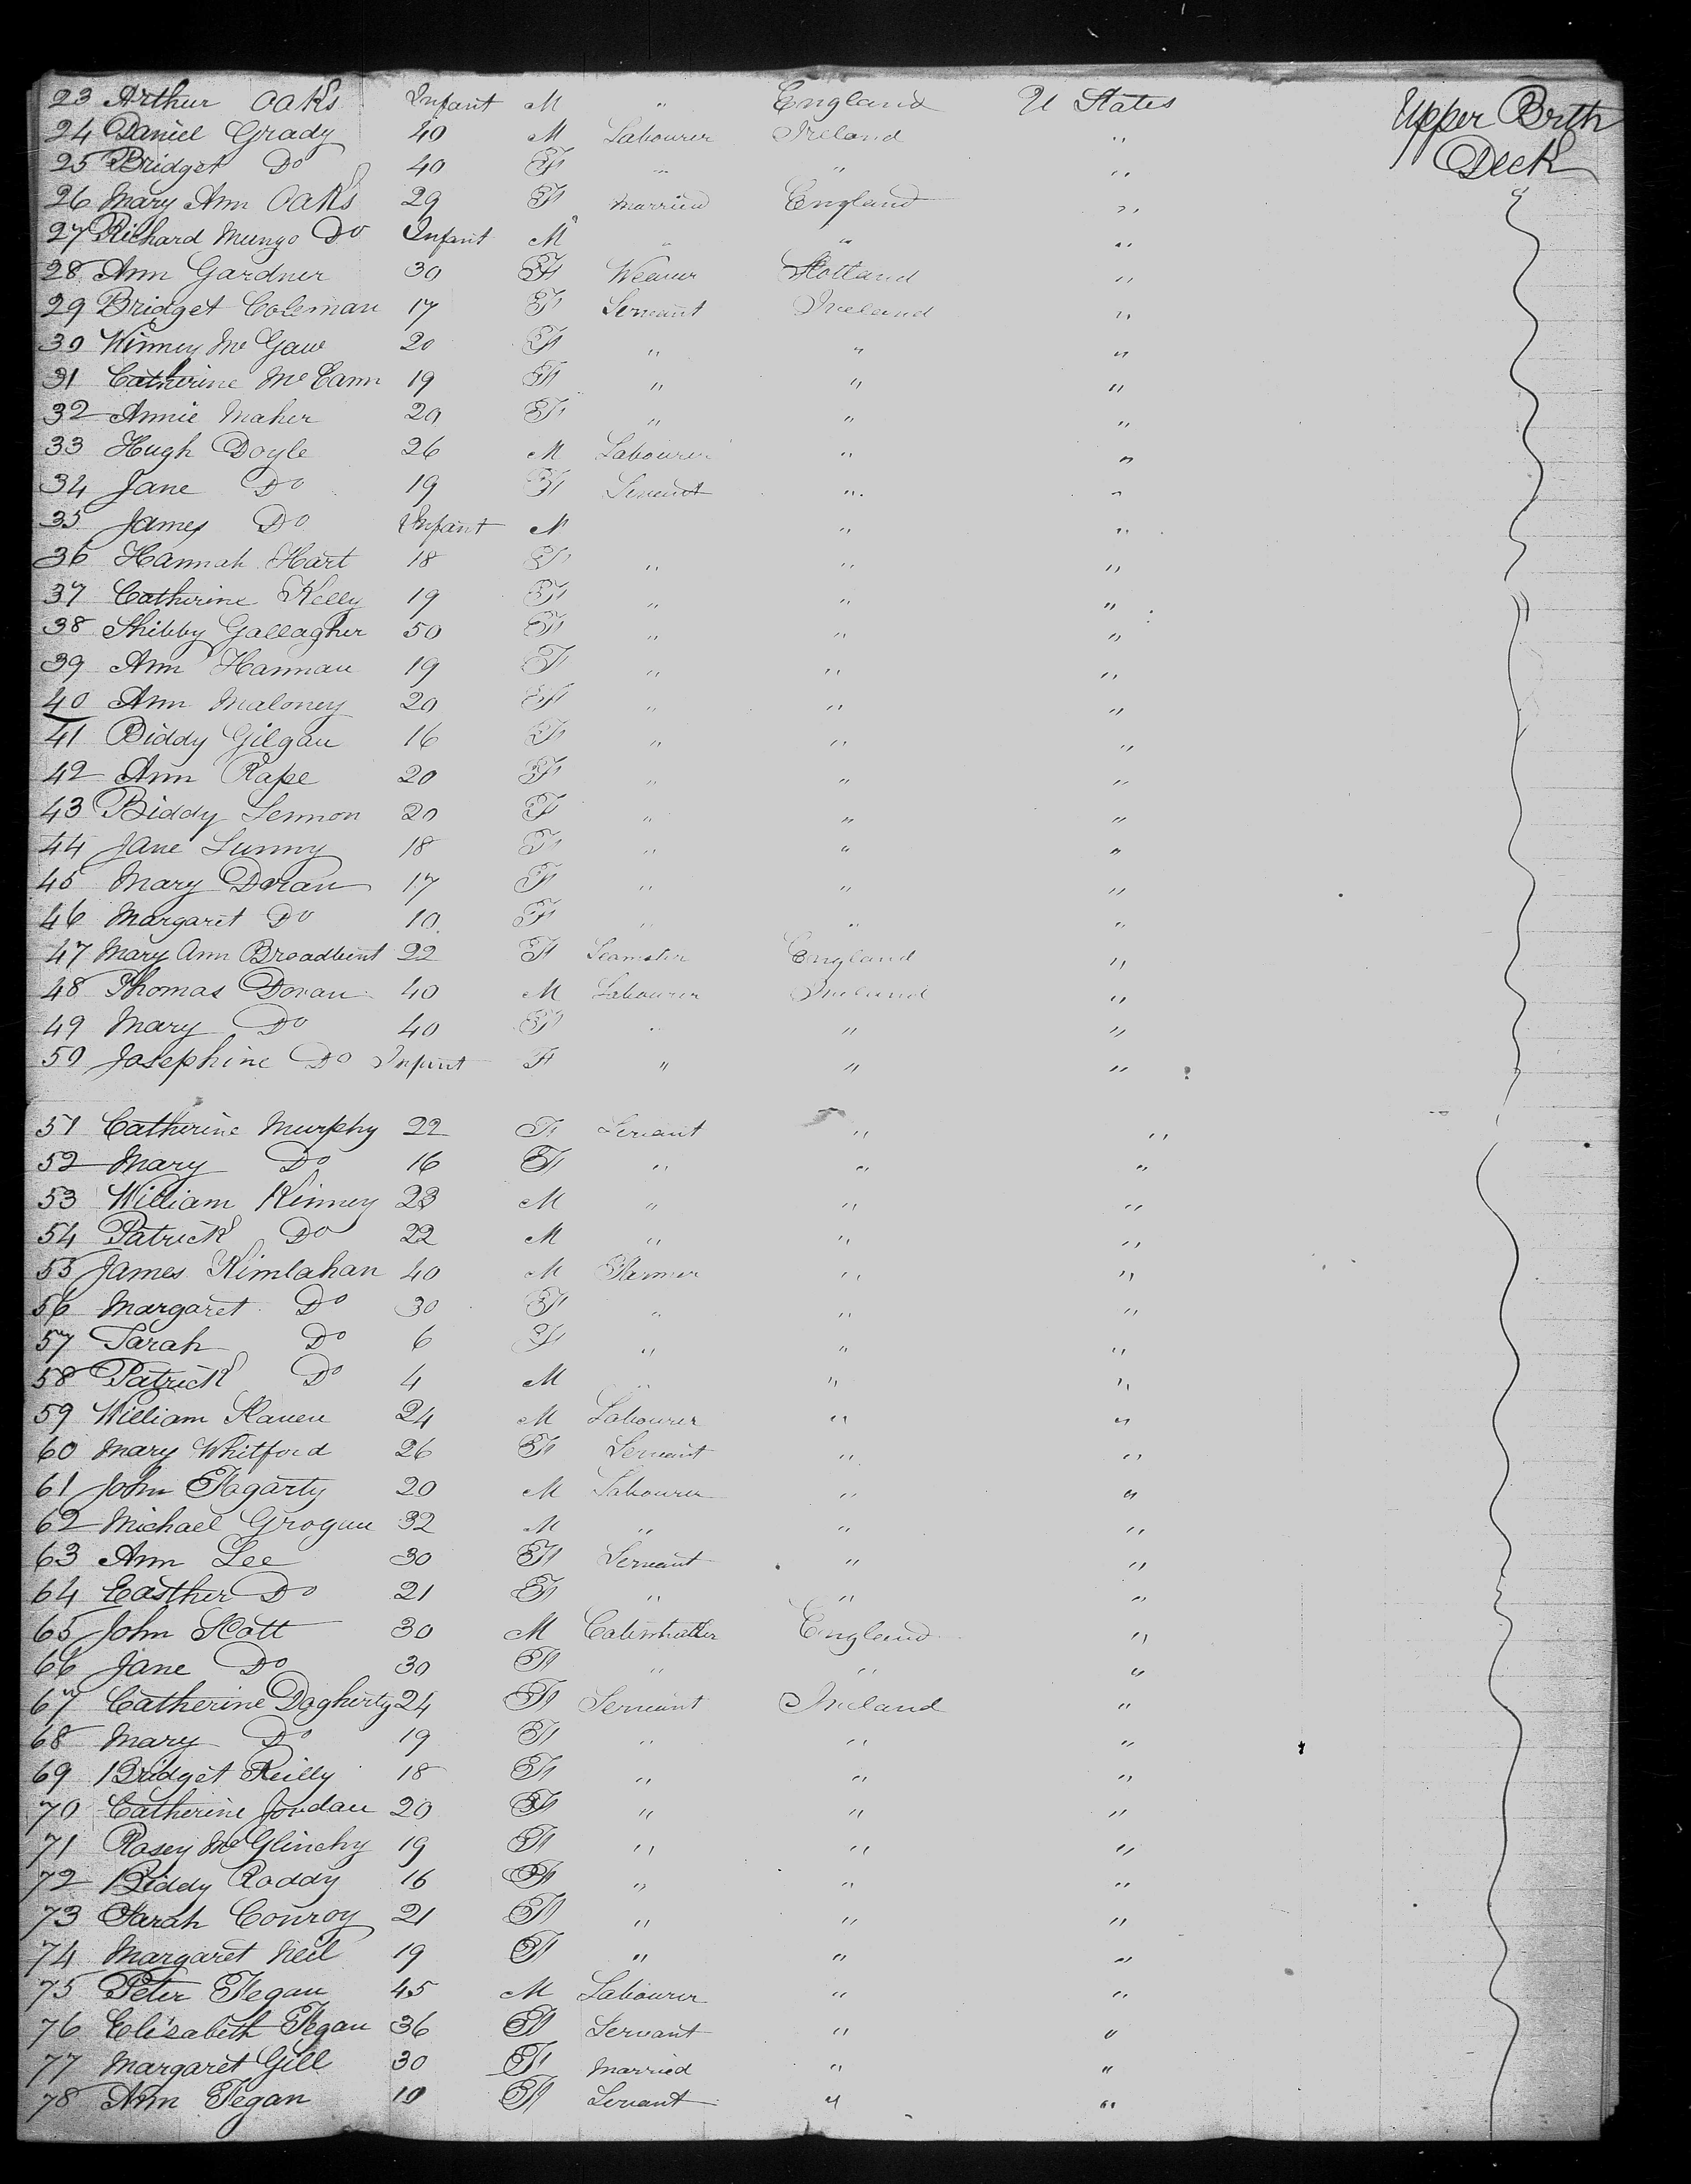 23 Arthur Oaks Infant M " England U States Upper Brth
24 Daniel Grady 40 M Labourer Ireland " Deck
25 Bridget Do 40 F " " "
26 Mary Ann Oaks 29 F Married England "
27 Richard Mungo Do Infant M " " "
28 Ann Gardner 30 F Weaver Scotland "
29 Bridget Coleman 17 F Servant Ireland "
30 Kinney Mc Gaw 20 F " " "
31 Catherine McCann 19 F " " "
32 Annie Maher 20 F " " "
33 Hugh Doyle 26 M Labourer " "
34 Jane Do 19 F Servant " "
35 James Do Infant M " "
36 Hannah Hart 18 F " " "
37 Catherine Kelly 19 F " " "
38 Shibby Gallagher 50 F " " "
39 Ann Hannan 19 F " " "
40 Ann Maloney 20 F " " "
41 Biddy Gilgan 16 F " " "
42 Ann Rape 20 F " " "
43 Biddy Lennon 20 F " " "
44 Jane Lunny 18 F " " "
45 Mary Doran 17 F " " "
46 Margaret Do 10 F " " "
47 Mary Ann Broadbent 22 F England "
48 Thomas Doran 40 M Labourer Ireland "
49 Mary Do 40 F " " "
50 Josephine Do Infant F " " "
51 Catherine Murphy 22 F Servant " "
52 Mary Do 16 F " " "
53 William Kinney 23 M " " "
54 Patrick Do 22 M " " "
55 James Kimlahan 40 M Farmer " "
56 Margaret Do 30 F " " "
57 Sarah Do 6 F " " "
58 Patrick Do 4 M " " "
59 William Slaven 24 M Labourer " "
60 Mary Whitford 26 F Servant " "
61 John Fagarty 20 M Labourer " "
62 Michael Grogan 32 M " " "
63 Ann Lee 30 F Servant " "
64 Easther Do 21 F " " "
65 John Scott 30 M England "
66 Jane Do 30 F " " "
67 Catherine Dogherty 24 F Servant Ireland "
68 Mary Do 19 F " " "
69 Bridget Reilly 18 F " " "
70 Catherine Jordan 20 F " " "
71 Rosey McGlinchy 19 F " " "
72 Biddy Roddy 16 F " " "
73 Sarah Conroy 21 F " " "
74 Margaret Neil 19 F " " "
75 Peter Fegan 45 M Labourer " "
76 Elisabeth Fegan 36 F Servant " "
77 Margaret Gill 30 F Married " "
78 Ann Fegan 10 F Servant " "